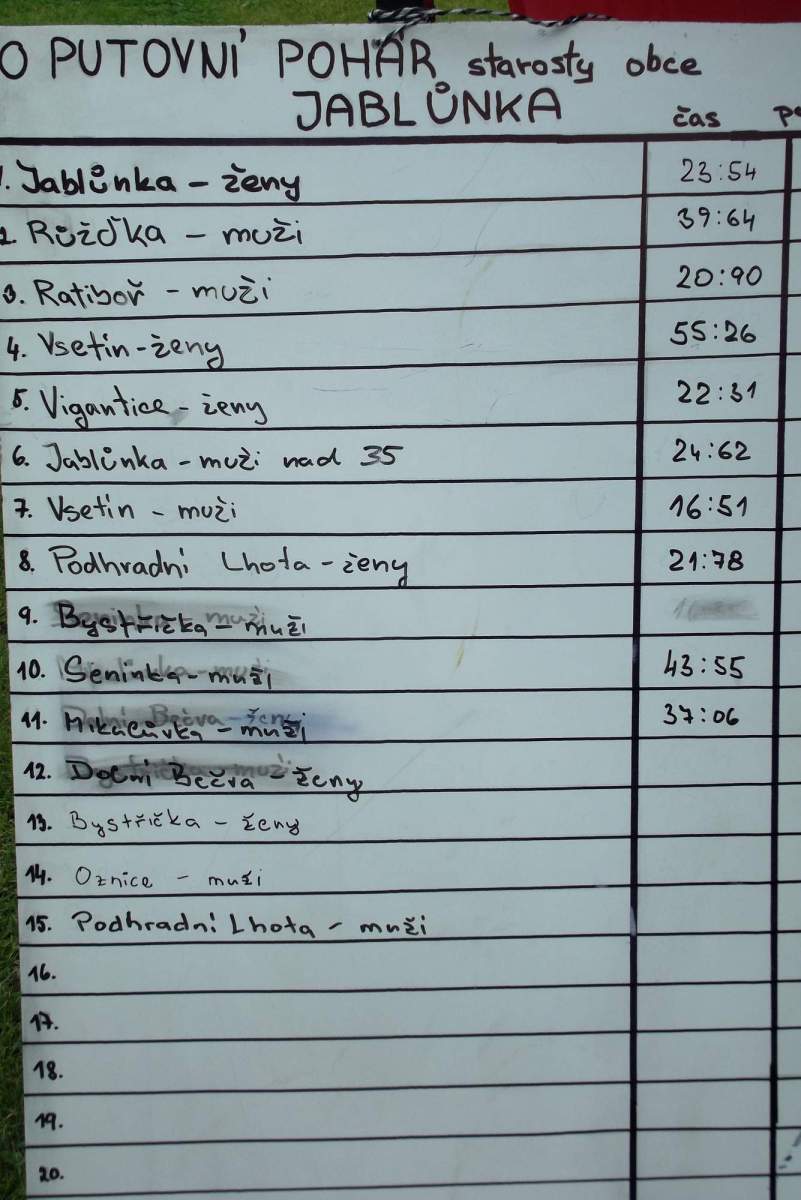 O PUTOVNÍ POHÁR starosty obce
JABLŮNKA
čas
1. Jablůnka – ženy 23:54
2. Růžďka – muži 39:64
3. Ratiboř – muži 20:90
4. Vsetín – ženy 55:26
5. Vigantice – ženy 22:31
6. Jablůnka – muži nad 35 24:62
7. Vsetín – muži 16:51
8. Podhradní Lhota – ženy 21:78
9. Bystřička – muži
10. Seninka – muži 43:55
11. Mikulůvka – muži 37:06
12. Dolní Bečva – ženy
13. Bystřička – ženy
14. Oznice – muži
15. Podhradní Lhota – muži
16.
17.
18.
19.
20.